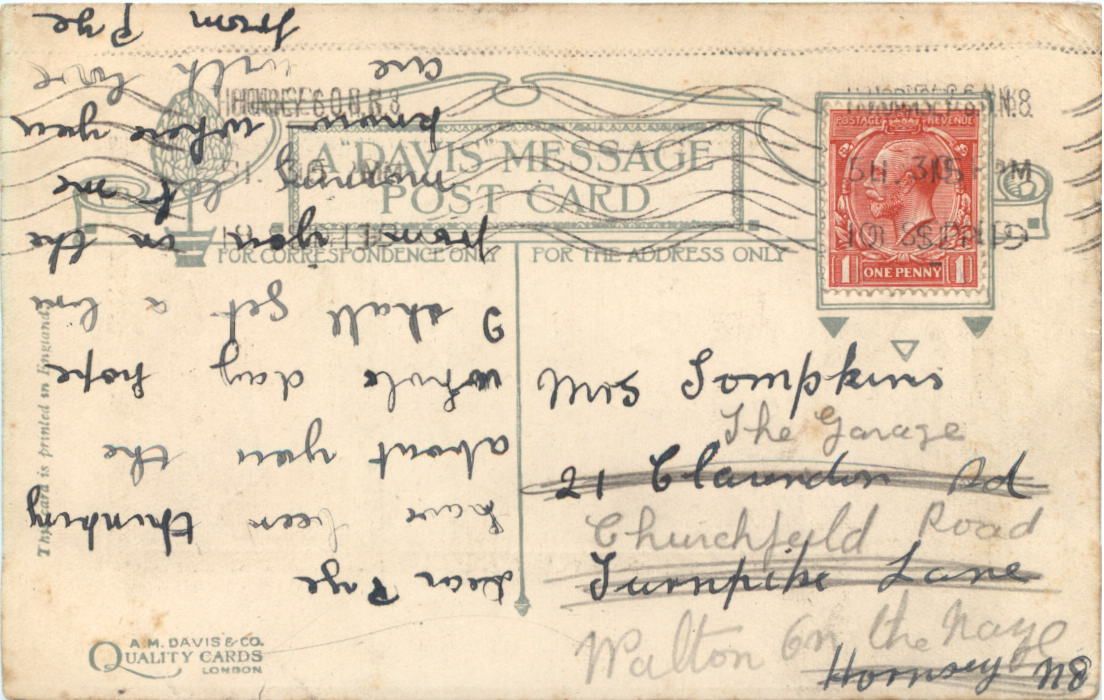 A "DAVIS" MESSAGE
POST CARD
FOR CORRESPONDENCE ONLY
FOR THE ADDRESS ONLY
POSTAGE REVENUE
1 ONE PENNY 1
HORNSEY N.8
Dear Page
have been thinking
about you the
whole day hope
I shall get a line
from you in the
morning let me
know where you
are with love
from Pye
Mrs Tompkins
The Garage
21 Clarendon Rd
Churchfield Road
Turnpike Lane
Walton on the Naze
Hornsey N8
This card is printed in England
A. M. DAVIS & CO.
QUALITY CARDS
LONDON